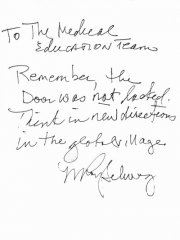 To The Medical
Education Team
Remember, the
Door was not locked.
Think in new directions
in the global village.